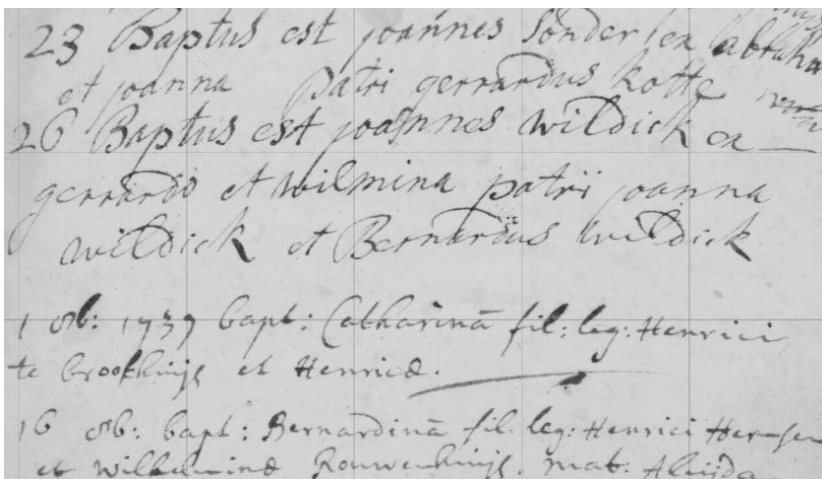 23 Baptus est joannes Sonder ex abraha
et joanna patri gerrardus kotte
26 Baptus est joannes wildick ex
gerrardo et wilmina patrii joanna
wildick et Bernardus wildick
1 8b: 1737 bapt: Catharinā fil: leg: Henrici
te brookhuijs et Henricæ.
16 8b: bapt: Bernardinā fil. leg: Henrici
et Wilhelminæ Rouwenhuijs. mat: Aleijda